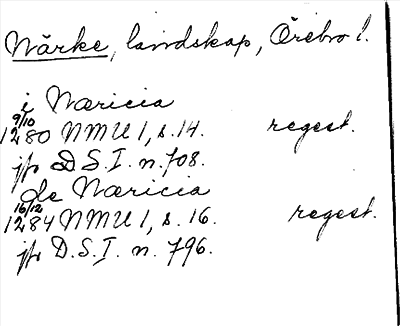 Närke, landskap, Örebro l.
i Næricia
9/10
1280 NMU 1, s. 14. regest.
jfr D.S.I. n. 708.
de Næricia
16/12
1284 NMU 1, s. 16. regest.
jfr D.S.I. n. 796.